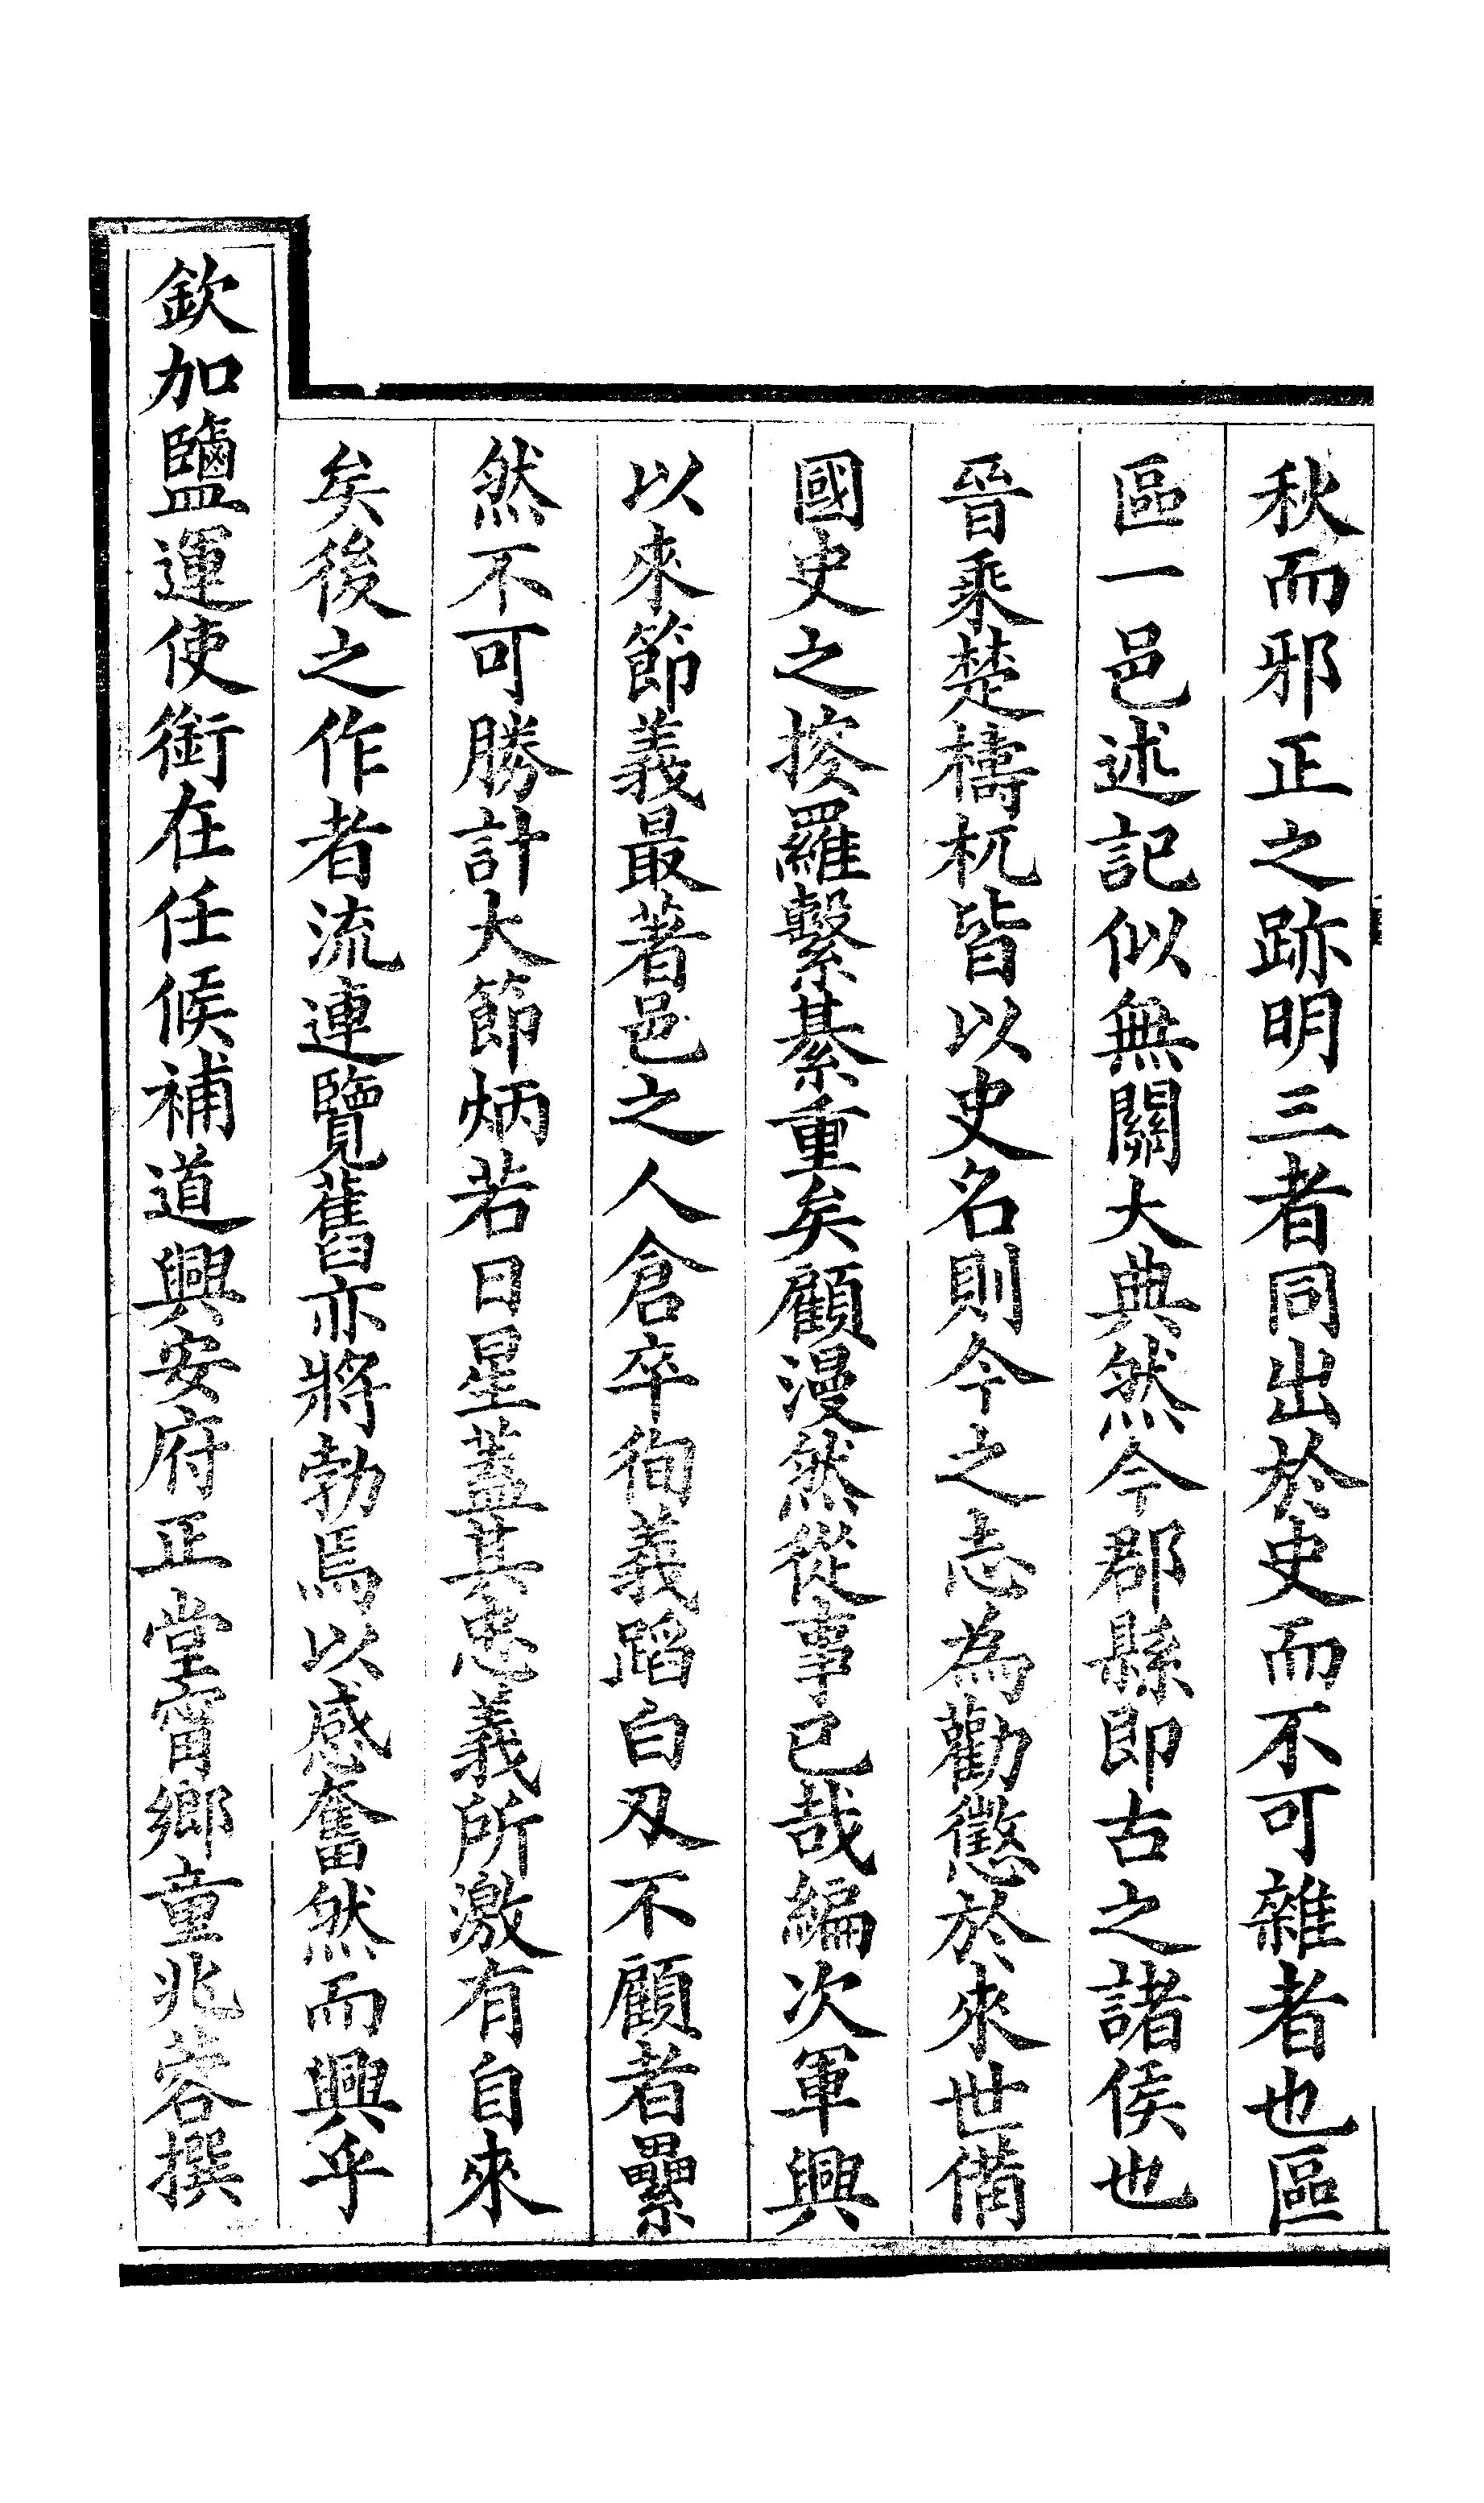 秋而邪正之跡明三者同出於史而不可雜者也區
區一邑述記似無關大典然今郡縣即古之諸侯也
晉乘楚檮杌皆以史名則今之志為勸懲於來世備
國史之搜羅繫綦重矣顧漫然從事已哉編次軍興
以來節義最著邑之人倉卒徇義蹈白刃不顧者纍
然不可勝計大節炳若日星蓋其忠義所激有自來
矣後之作者流連覽舊亦將勃焉以感奮然而興乎
欽加鹽運使銜在任候補道興安府正堂甯鄉童兆蓉撰